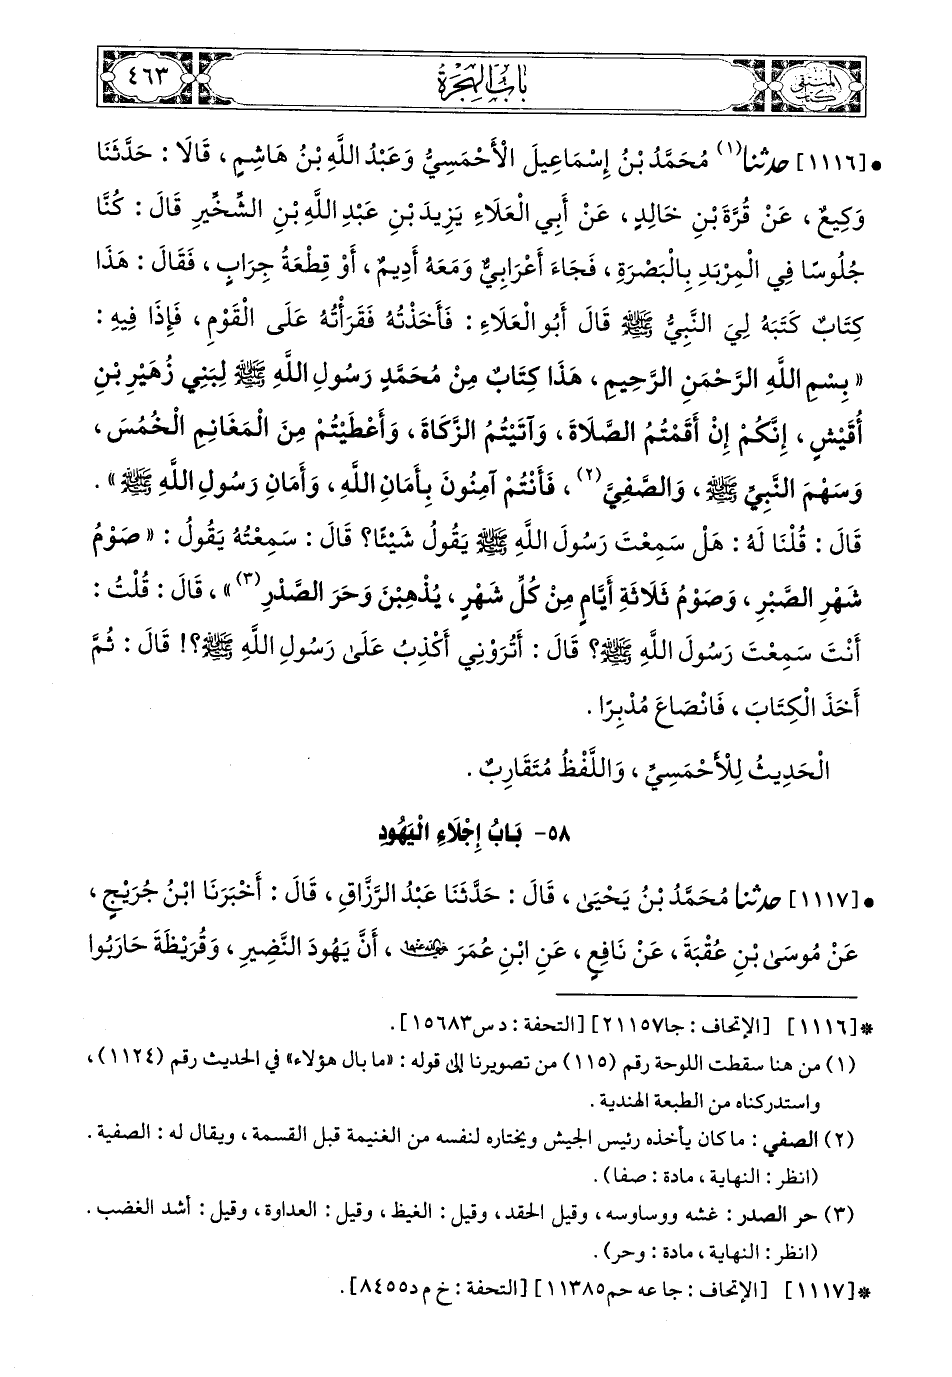 المنتقى كتاب
باب الهجرة
٤٦٣
• [١١١٦] حدثنا(١) مُحَمَّدُ بْنُ إِسْمَاعِيلَ الْأَحْمَسِيُّ وَعَبْدُ اللَّهِ بْنُ هَاشِمٍ، قَالَا : حَدَّثَنَا
وَكِيعٌ، عَنْ قُرَّةَ بْنِ خَالِدٍ، عَنْ أَبِي الْعَلَاءِ يَزِيدَ بْنِ عَبْدِ اللَّهِ بْنِ الشِّخِّيرِ قَالَ : كُنَّا
جُلُوسًا فِي الْمِرْبَدِ بِالْبَصْرَةِ، فَجَاءَ أَعْرَابِيٌّ وَمَعَهُ أَدِيمٌ، أَوْ قِطْعَةُ جِرَابٍ، فَقَالَ : هَذَا
كِتَابٌ كَتَبَهُ لِيَ النَّبِيُّ ﷺ قَالَ أَبُو الْعَلَاءِ : فَأَخَذْتُهُ فَقَرَأْتُهُ عَلَى الْقَوْمِ، فَإِذَا فِيهِ :
« بِسْمِ اللَّهِ الرَّحْمَنِ الرَّحِيمِ، هَذَا كِتَابٌ مِنْ مُحَمَّدٍ رَسُولِ اللَّهِ ﷺ لِبَنِي زُهَيْرِ بْنِ
أُقَيْشٍ، إِنَّكُمْ إِنْ أَقَمْتُمُ الصَّلَاةَ، وَآتَيْتُمُ الزَّكَاةَ، وَأَعْطَيْتُمْ مِنَ الْمَغَانِمِ الْخُمُسَ،
وَسَهْمَ النَّبِيِّ ﷺ، وَالصَّفِيَّ(٢)، فَأَنْتُمْ آمِنُونَ بِأَمَانِ اللَّهِ، وَأَمَانِ رَسُولِ اللَّهِ ﷺ» .
قَالَ : قُلْنَا لَهُ : هَلْ سَمِعْتَ رَسُولَ اللَّهِ ﷺ يَقُولُ شَيْئًا؟ قَالَ : سَمِعْتُهُ يَقُولُ : «صَوْمُ
شَهْرِ الصَّبْرِ، وَصَوْمُ ثَلَاثَةِ أَيَّامٍ مِنْ كُلِّ شَهْرٍ، يُذْهِبْنَ وَحَرَ الصَّدْرِ(٣)»، قَالَ : قُلْتُ :
أَنْتَ سَمِعْتَ رَسُولَ اللَّهِ ﷺ؟ قَالَ : أَتُرَوْنِي أَكْذِبُ عَلَىٰ رَسُولِ اللَّهِ ﷺ؟! قَالَ : ثُمَّ
أَخَذَ الْكِتَابَ، فَانْصَاعَ مُدْبِرًا .
الْحَدِيثُ لِلْأَحْمَسِيِّ، وَاللَّفْظُ مُتَقَارِبٌ .
٥٨- بَابُ إِجْلَاءِ الْيَهُودِ
• [١١١٧] حدثنا مُحَمَّدُ بْنُ يَحْيَىٰ، قَالَ : حَدَّثَنَا عَبْدُ الرَّزَّاقِ، قَالَ : أَخْبَرَنَا ابْنُ جُرَيْجٍ،
عَنْ مُوسَىٰ بْنِ عُقْبَةَ، عَنْ نَافِعٍ، عَنِ ابْنِ عُمَرَ رضي الله عنهما، أَنَّ يَهُودَ النَّضِيرِ، وَقُرَيْظَةَ حَارَبُوا
*[١١١٦] [الإتحاف : جا٢١١٥٧] [التحفة : د س١٥٦٨٣].
(١) من هنا سقطت اللوحة رقم (١١٥) من تصويرنا إلى قوله : «ما بال هؤلاء» في الحديث رقم (١١٢٤)،
واستدركناه من الطبعة الهندية .
(٢) الصفي : ما كان يأخذه رئيس الجيش ويختاره لنفسه من الغنيمة قبل القسمة، ويقال له : الصفية .
(انظر : النهاية، مادة : صفا).
(٣) حر الصدر : غشه ووساوسه، وقيل الحقد، وقيل : الغيظ، وقيل : العداوة، وقيل : أشد الغضب .
(انظر : النهاية، مادة : وحر).
*[١١١٧] [الإتحاف : جا عه حم١١٣٨٥] [التحفة : خ م د٨٤٥٥].